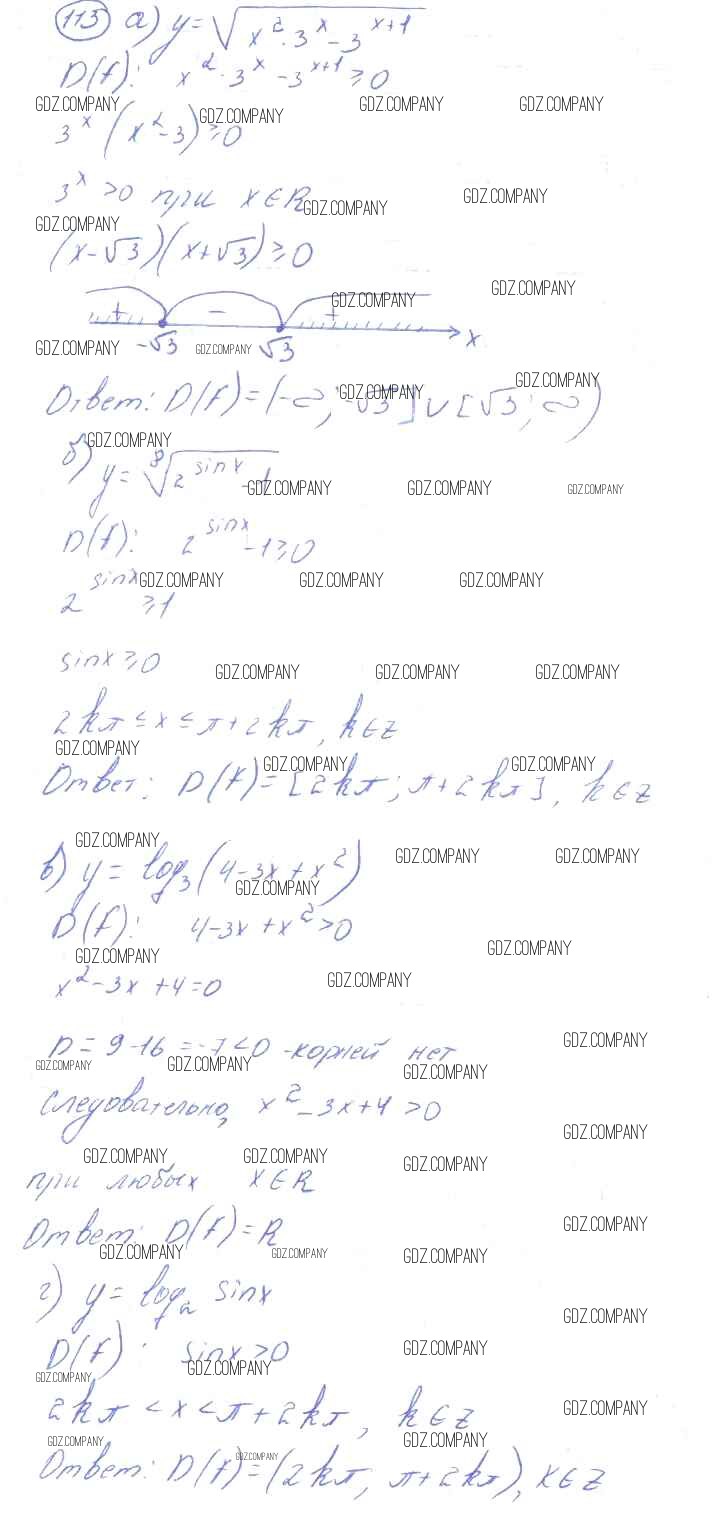 113 а) y = √(x² · 3^x - 3^(x+1))
D(f): x² · 3^x - 3^(x+1) ≥ 0
GDZ.COMPANY GDZ.COMPANY GDZ.COMPANY GDZ.COMPANY
3^x (x² - 3) ≥ 0
3^x > 0 при x ∈ R
GDZ.COMPANY GDZ.COMPANY
GDZ.COMPANY
(x - √3)(x + √3) ≥ 0
GDZ.COMPANY GDZ.COMPANY
+ - +
-√3 √3 x
GDZ.COMPANY GDZ.COMPANY
Ответ: D(f) = (-∞; -√3] ∪ [√3; ∞)
GDZ.COMPANY GDZ.COMPANY
GDZ.COMPANY
б) y = ⁸√(2^(sinx) - 1)
GDZ.COMPANY GDZ.COMPANY GDZ.COMPANY
D(f): 2^(sinx) - 1 ≥ 0
2^(sinx) ≥ 1
GDZ.COMPANY GDZ.COMPANY GDZ.COMPANY
sinx ≥ 0
GDZ.COMPANY GDZ.COMPANY GDZ.COMPANY
2kπ ≤ x ≤ π + 2kπ, k ∈ Z
GDZ.COMPANY GDZ.COMPANY GDZ.COMPANY
Ответ: D(f) = [2kπ; π + 2kπ], k ∈ Z
GDZ.COMPANY GDZ.COMPANY GDZ.COMPANY
в) y = log₃(4 - 3x + x²)
GDZ.COMPANY
D(f): 4 - 3x + x² > 0
GDZ.COMPANY GDZ.COMPANY
x² - 3x + 4 = 0
GDZ.COMPANY
D = 9 - 16 = -7 < 0 - корней нет
GDZ.COMPANY GDZ.COMPANY GDZ.COMPANY GDZ.COMPANY
Следовательно, x² - 3x + 4 > 0
GDZ.COMPANY
GDZ.COMPANY GDZ.COMPANY GDZ.COMPANY
при любых x ∈ R
Ответ: D(f) = R
GDZ.COMPANY
GDZ.COMPANY GDZ.COMPANY GDZ.COMPANY
г) y = logₐ sinx
GDZ.COMPANY
D(f): sinx > 0
GDZ.COMPANY GDZ.COMPANY GDZ.COMPANY
2kπ < x < π + 2kπ, k ∈ Z
GDZ.COMPANY
GDZ.COMPANY GDZ.COMPANY GDZ.COMPANY
Ответ: D(f) = (2kπ, π + 2kπ), k ∈ Z